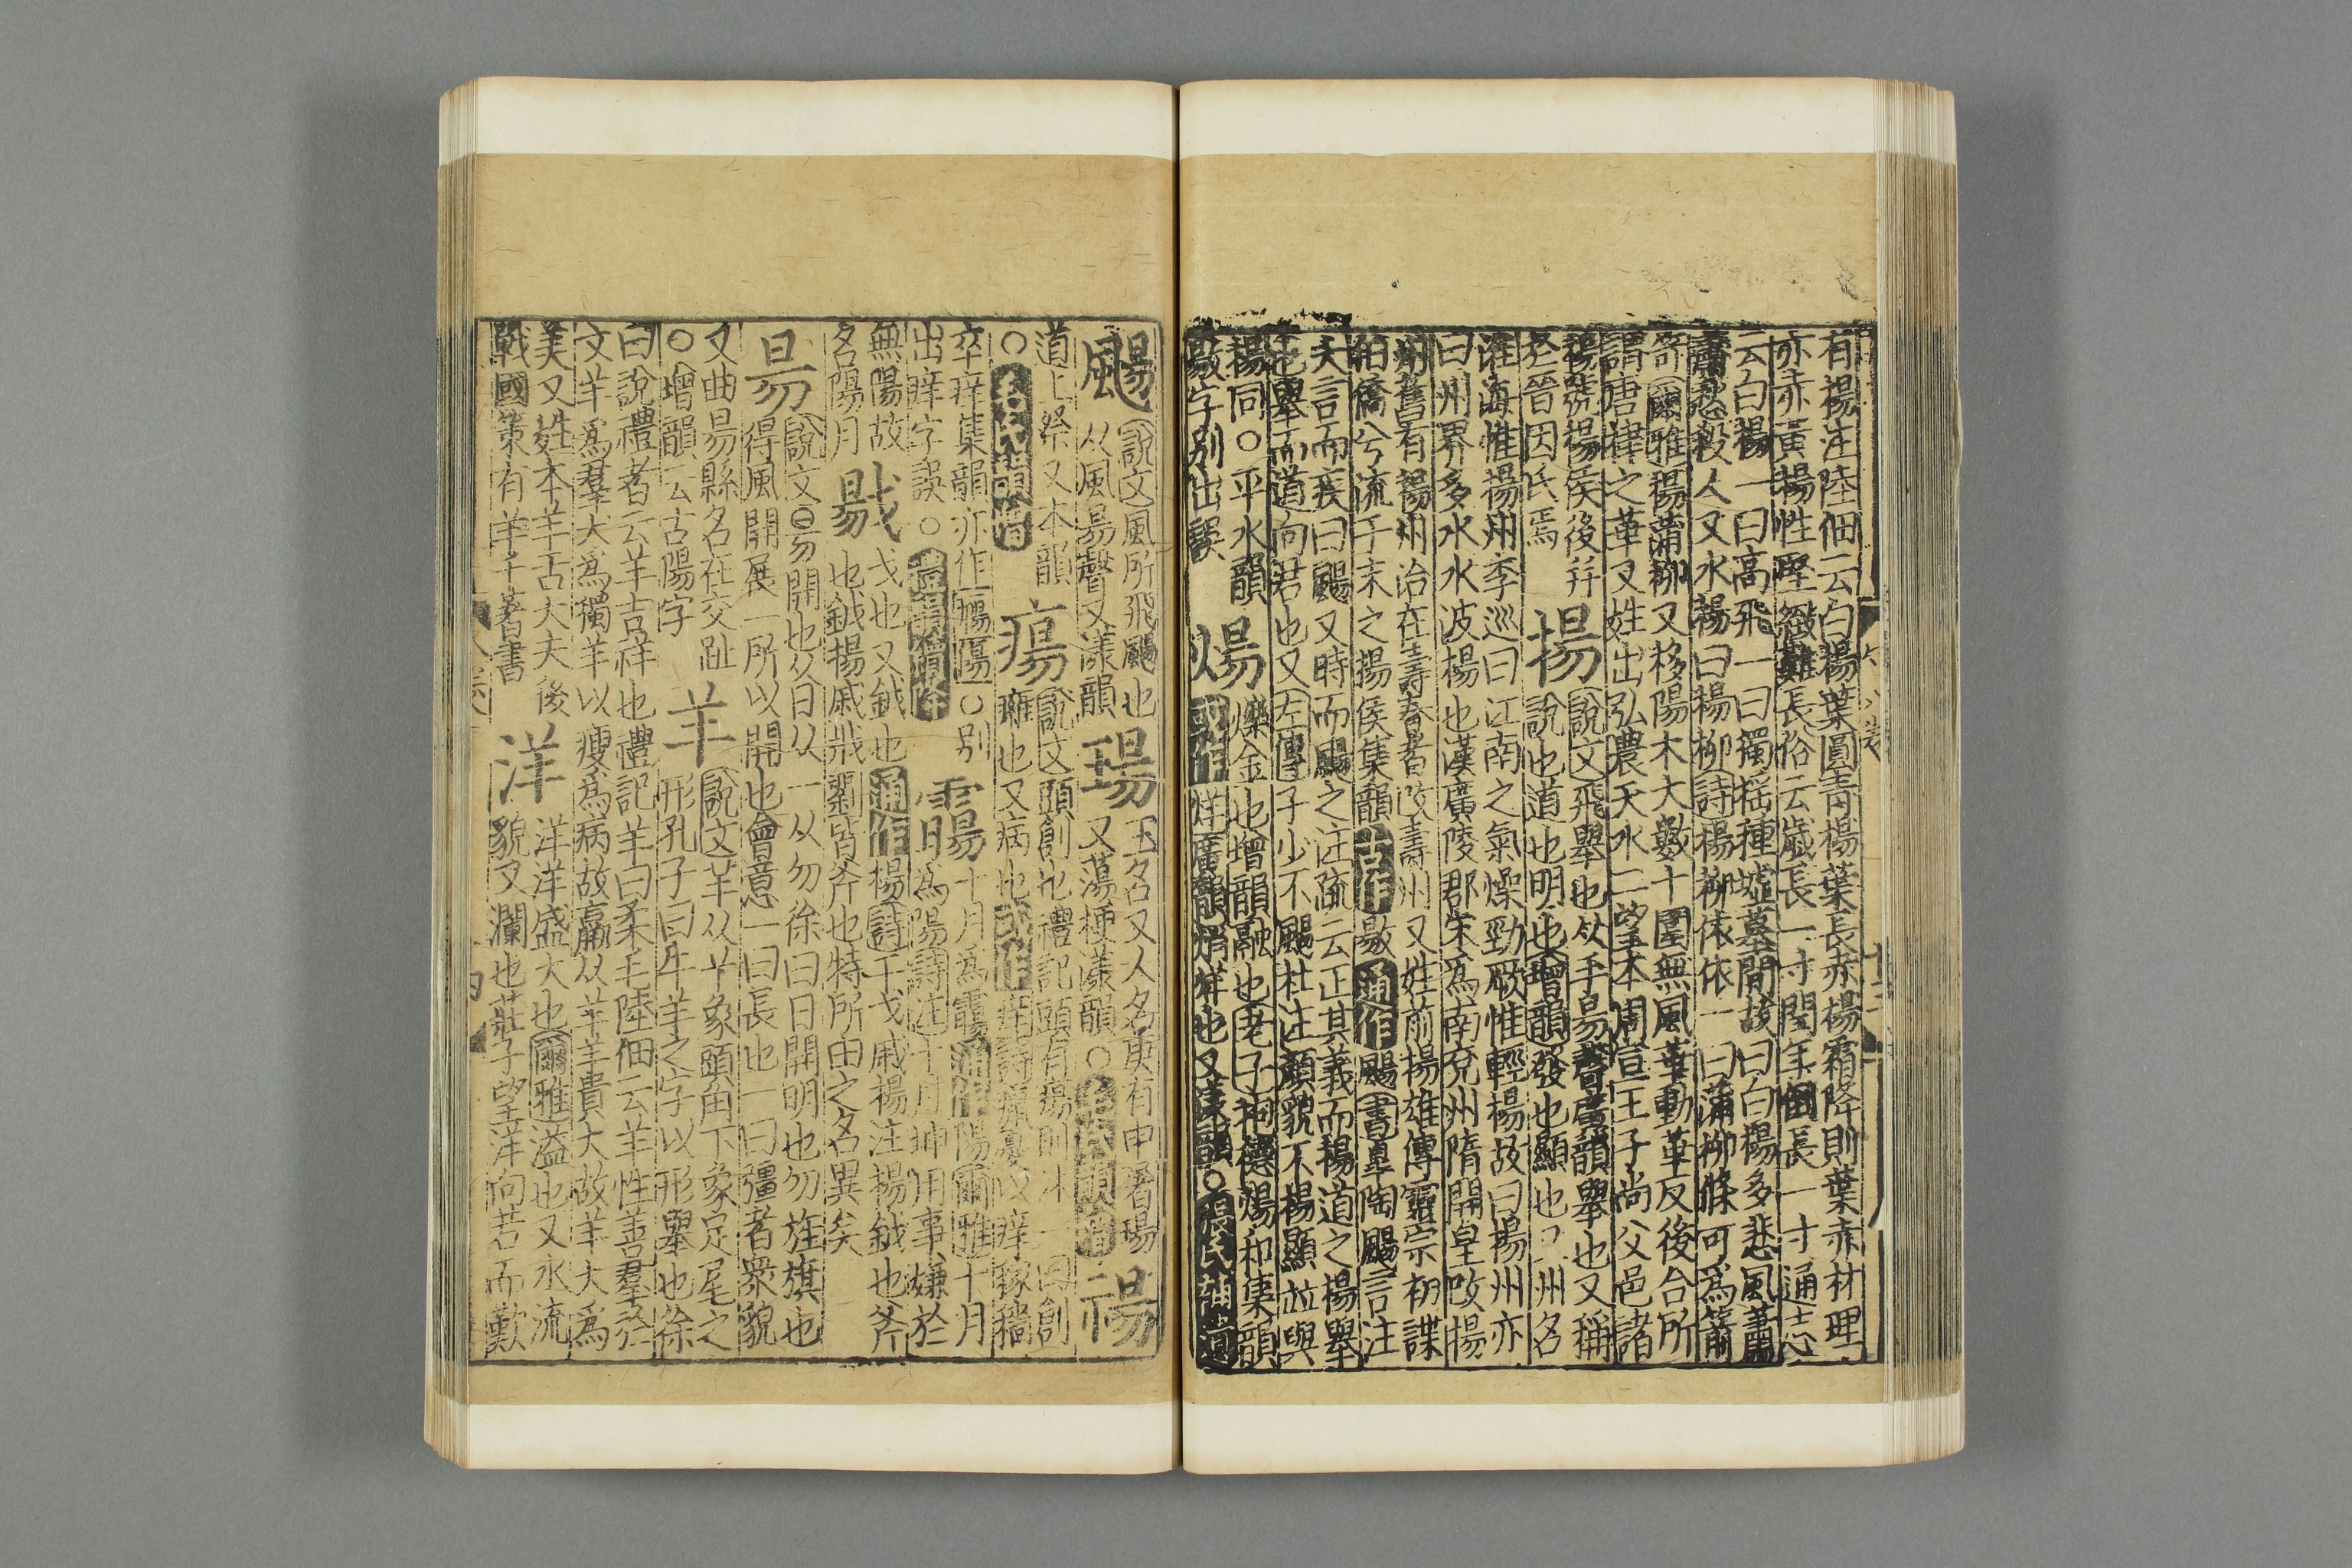 有楊注陸佃云白楊葉圓青楊葉長赤楊霜降則葉赤材理
亦赤黃楊性堅緻難長俗云歲長一寸閏年倒長一寸通志
云白楊一曰高飛一曰獨搖種墟墓間故曰白楊多悲風蕭
蕭愁殺人又水楊曰楊柳詩楊柳依依一曰蒲柳條可爲箭
笴爾雅楊蒲柳又移陽木大數十圍無風葉動華反後合所
謂唐棣之華又姓出弘農天水二望本周宣王子尚父邑諸
楊號楊侯後并
於晉因氏焉
揚
說文飛舉也从手昜聲廣韻舉也又稱
說也道也明也增韻發也顯也 州名
淮海惟揚州李巡曰江南之氣燥勁厥惟輕楊故曰揚州亦
曰州界多水水波楊也漢廣陵郡宋爲南兗州隋開皇改揚
州舊有揚州治在壽春者改壽州又姓前揚雄傳靈宗初諜
伯僑兮流于末之揚侯集韻古作敭通作颺書皐陶颺言注
大言而疾曰颺又時而颺之注疏云正其義而楊道之楊舉
也舉而道向君也又左傳子少不颺杜注顏貌不楊顯並與
揚同○平水韻
敭字別出誤
煬
爍金也增韻融也老子祠德煬和集韻
或作烊廣韻焇烊也又漾韻○
颺
說文風所飛颺也
从風昜聲又漾韻
瑒
玉名又人名庚有申屠瑒
又蕩梗漾韻○
禓
道上祭又本韻
○
瘍
說文頭創也禮記頭有瘍則沐一曰創
癰也又病也或作痒詩癙憂以痒稼穡
卒痒集韻亦作𤻈傷○別
出痒字誤○
霷
十月爲霷通作陽爾雅十月
爲陽詩注十月坤用事嫌於
無陽故
名陽月
戈也又鉞也通作楊詩干戈戚楊注揚鉞也斧
也鉞揚戚戕劉皆斧也特所由之名異矣
昜
說文昜開也从日从一从勿徐曰日開明也勿旌旗也
得風開展一所以開也會意一曰長也一曰彊者衆貌
又曲昜縣名在交趾
○增韻云古陽字
羊
說文羊从𦫳象頭角下象足尾之
形孔子曰牛羊之字以形舉也徐
曰說禮者云羊吉祥也禮記羊曰柔毛陸佃云羊性善羣於
文羊爲羣犬爲獨羊以瘦爲病故羸从羊羊貴大故羊大爲
美又姓本羊舌大夫後
戰國策有羊千著書
洋
洋洋盛大也爾雅溢也又水流
貌又瀾也莊子望洋向若而歎